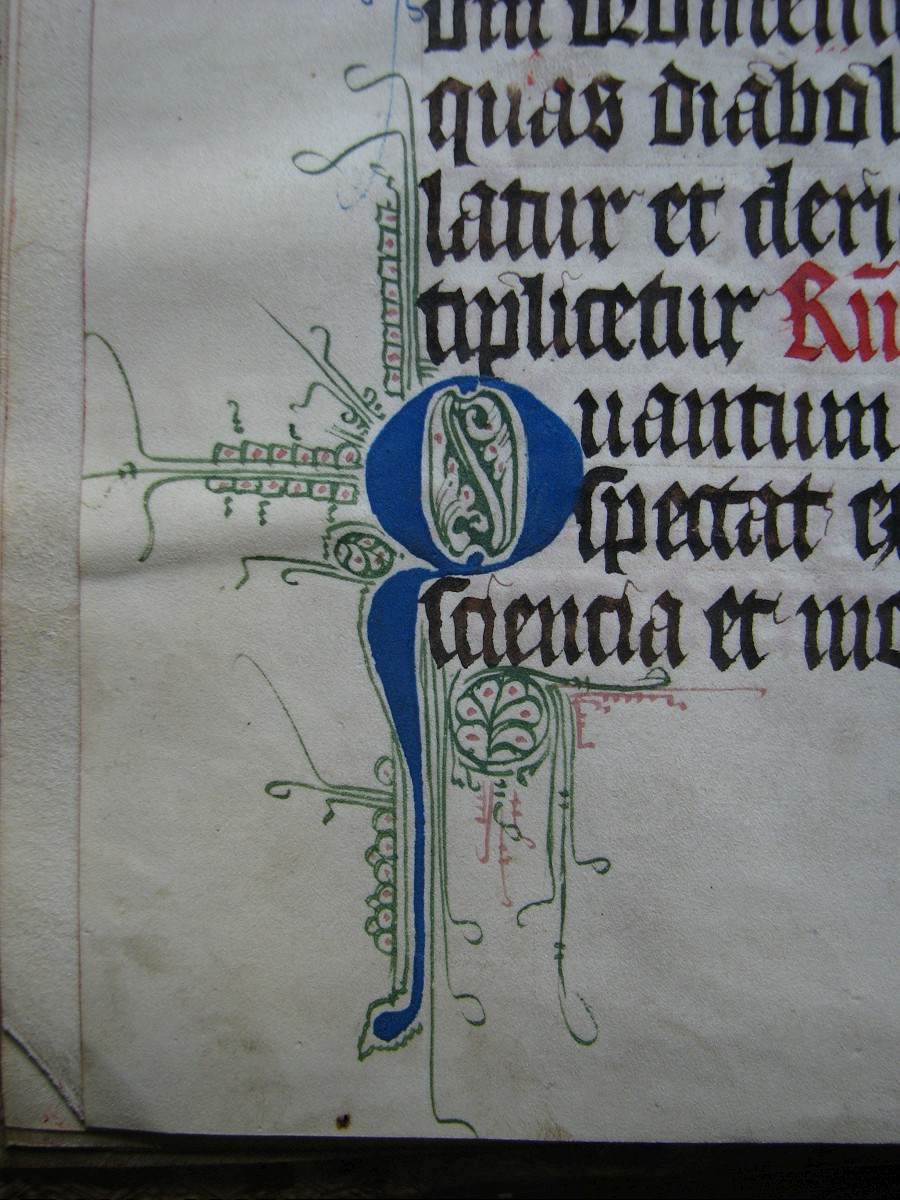 quas diabol
latur et deri
tiplicetur Rū
Quantum
spectat ex
sciencia et mo